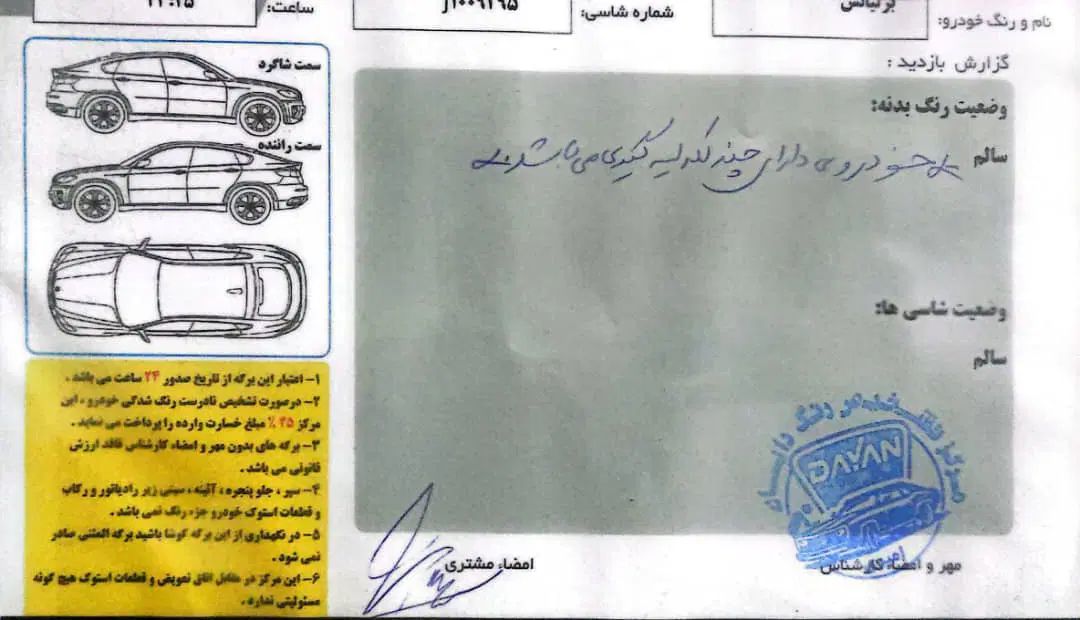 نام و رنگ خودرو:
شماره شاسی: J1009295
ساعت:
گزارش بازدید :
وضعیت رنگ بدنه:
سالم
خودروی دارای چند لکه لیسه گیری می باشد
وضعیت شاسی ها:
سالم
سمت شاگرد
سمت راننده
۱- اعتبار این برگه از تاریخ صدور ۲۴ ساعت می باشد .
۲- درصورت تشخیص نادرست رنگ شدگی خودرو ، این
مرکز ۲۵ % مبلغ خسارت وارده را پرداخت می نماید .
۳- برگه های بدون مهر و امضاء کارشناس فاقد ارزش
قانونی می باشد .
۴- سپر ، جلو پنجره ، آئینه ، سینی زیر رادیاتور و رکاب
و قطعات استوک خودرو جزء رنگ نمی باشد .
۵- در نگهداری از این برگه کوشا باشید برگه المثنی صادر
نمی شود .
۶- این مرکز در مقابل اتاق تعویض و قطعات استوک هیچ گونه
مسئولیتی ندارد .
امضاء مشتری
مهر و امضاء کارشناس
DAYAN